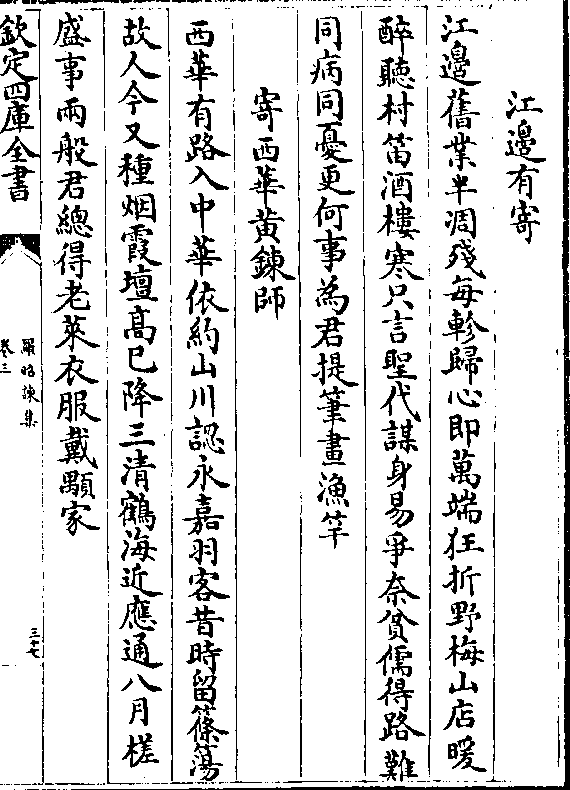 江邊有寄
江邊舊業半凋殘每軫歸心即萬端狂折野梅山店暖
醉聽村笛酒樓寒只言聖代謀身易爭奈貧儒得路難
同病同憂更何事為君提筆畫漁竿
寄西華黃鍊師
西華有路入中華依約山川認永嘉羽客昔時留篠簜
故人今又種烟霞壇髙已降三清鶴海近應通八月槎
盛事兩般君總得老萊衣服戴顒家
欽定四庫全書
羅昭諫集
卷三
三十七